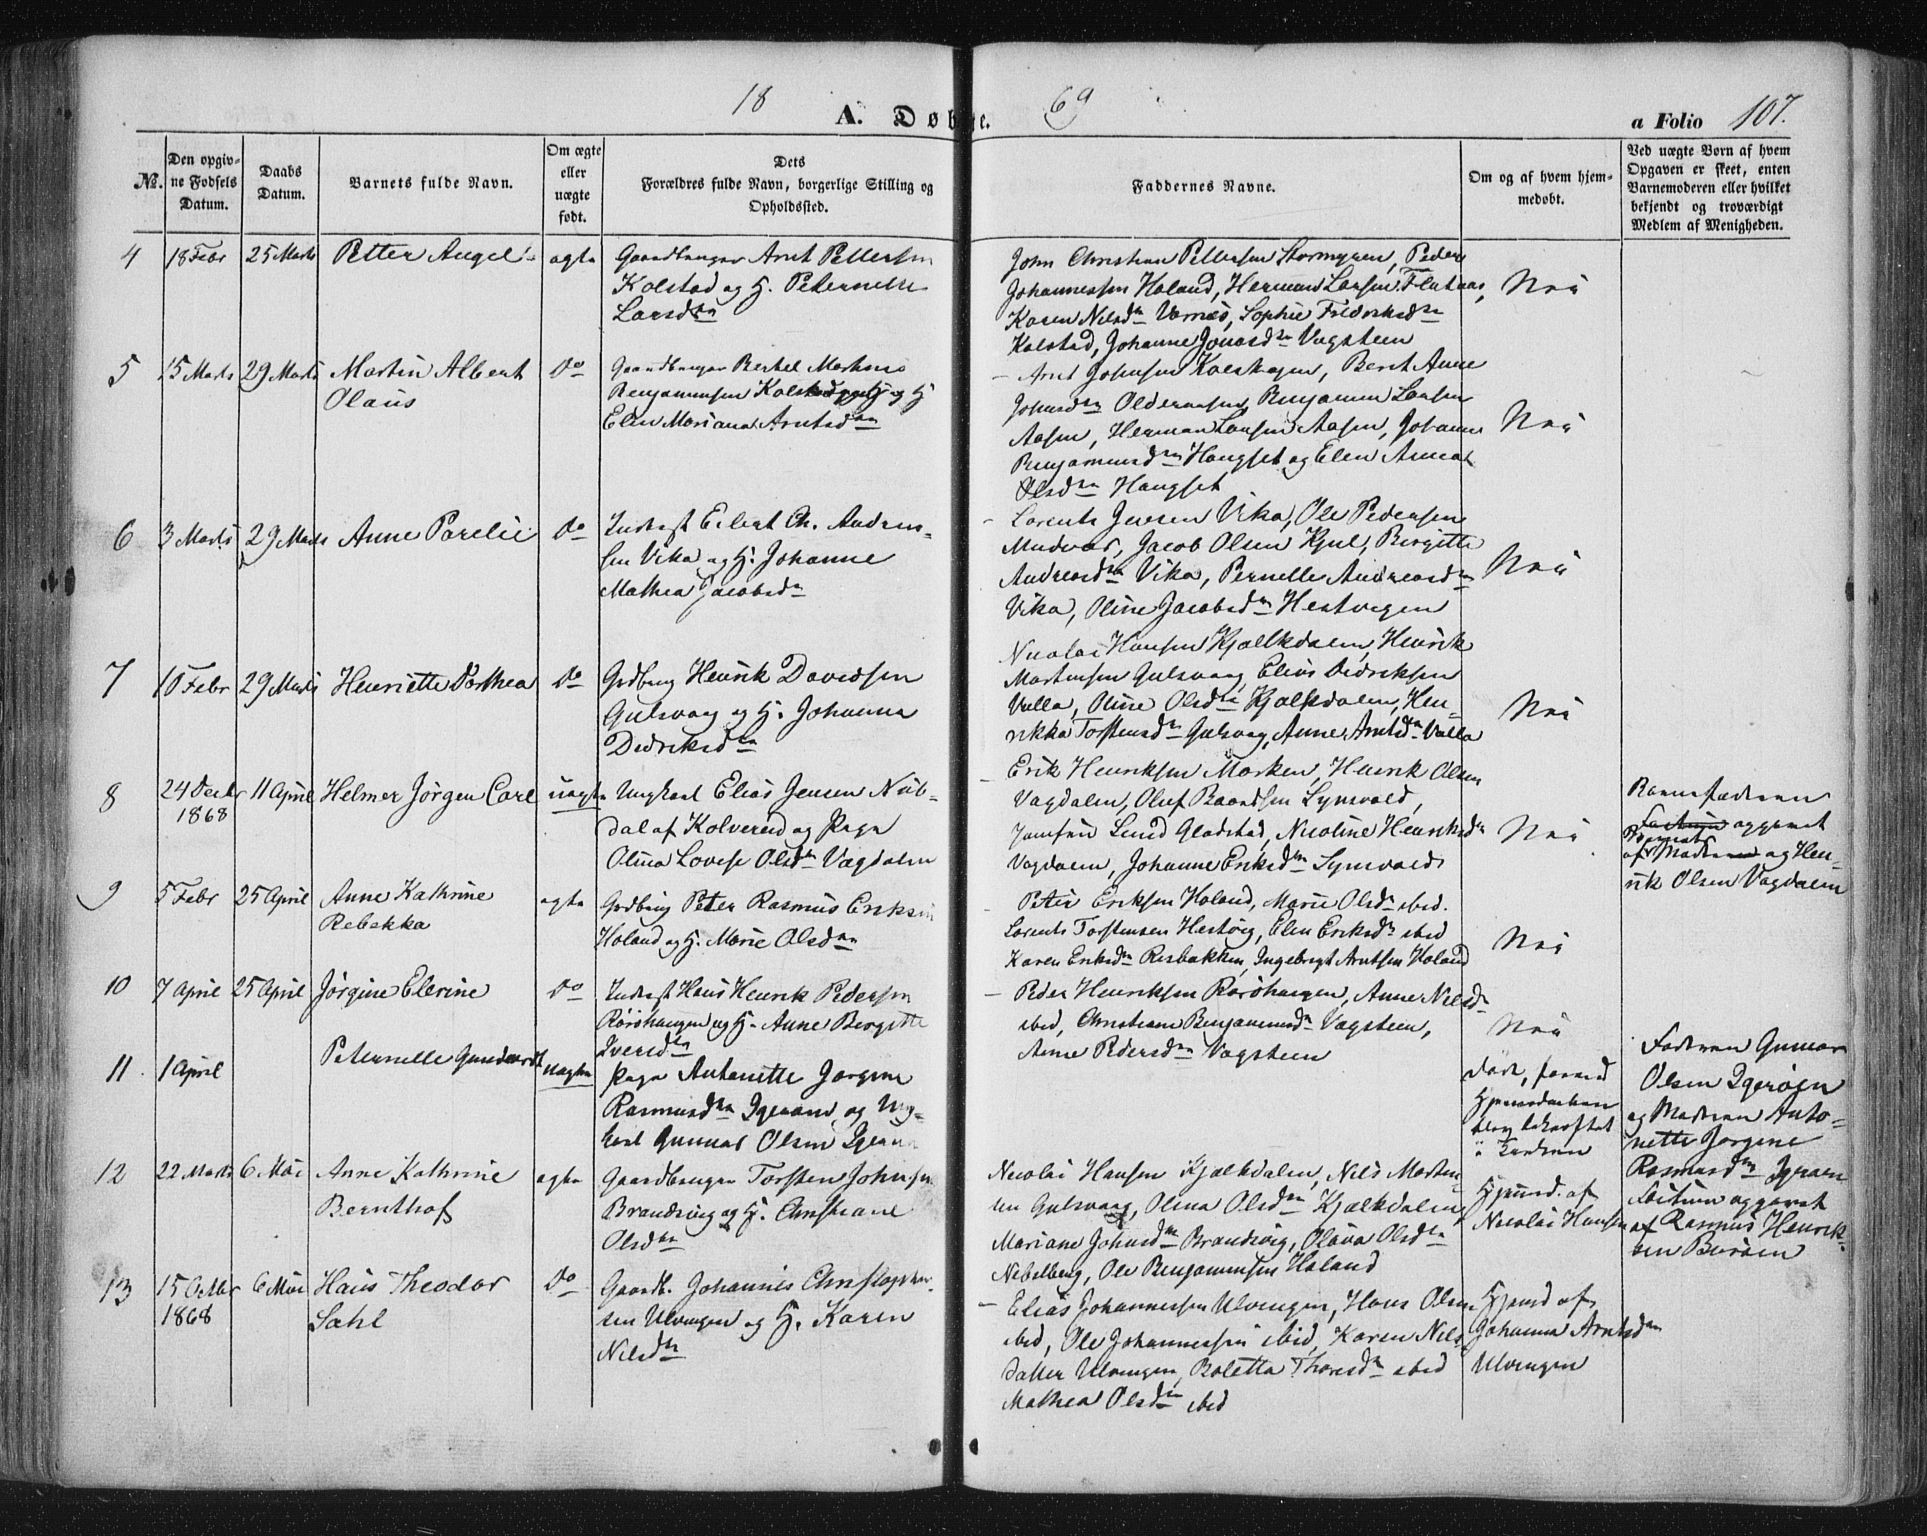 18 69
A. Døbte.
a Folio 107.
No.
Den opgivne Fødsels Datum.
Daabs Datum.
Barnets fulde Navn.
Om ægte eller uægte født.
Dets Forældres fulde Navn, borgerlige Stilling og Opholdssted.
Faddernes Navne.
Om og af hvem hjemmedøbt.
Ved uægte Børn af hvem Opgaven er skeet, enten Barnemoderen eller hvilket bekjendt og troværdigt Medlem af Menigheden.
4 18 Febr 25 Marts Petter Angel ægte
Gaardbruger Arnt Pettersen
Kolstad og H. Peternelle
Larsdtr
John Christian Pettersen Stormyren, Peder
Johannessen Holand, Herman Larsen Flataas,
Karen Nilsdtr Vernes, Sophie Fredriksdtr
Kolstad, Johanne Jonasdtr Vagsteen
Nei
5 15 Marts 29 Marts Martin Albert
Olaus
Do
Gaardbruger Bertel Markus
Benjaminsen Kolstad og H
Elen Mariana Arntsdtr
Arnt Johnsen Kolshagen, Beret Anne
Johnsdtr Olderaasen, Benjamin Larsen
Aasen, Herman Larsen Aasen, Johanne
Benjaminsdtr Haugset og Elen Anna
Olsdtr Haugset
Nei
6 3 Marts 29 Marts Anne Parelie Do
Indregst Eilert Ch. Andreas-
sen Vika og H. Johanne
Mathea Jacobsdtr
Lorents Jensen Vika, Ole Pedersen
Mudvær, Jacob Olsen Hjul, Birgitte
Andreasdtr Vika, Pernelle Andreasdtr
Vika, Oline Jacobsdtr Hestvegen
Nei
7 10 Febr 29 Marts Henriette Dorthea Do
Grdbrug Henrik Davidsen
Gulsvaag og H. Johanna
Didriksdtr
Nicolai Hansen Kjælkdalen, Henrik
Martensen Gulsvaag, Elias Didriksen
Valla, Oline Olsdtr Kjælkdalen, Hen-
rikka Torstensdtr Gulsvaag, Anne Arntsdtr Valla
Nei
8 24 Decbr
1868
11 April Helmer Jørgen Carl uægte
Ungkarl Elias Jensen Nub-
dal af Kolvereid og Pige
Olina Lovise Olsdtr Vagdalen
Erik Henriksen Marken, Henrik Olsen
Vagdalen, Oluf Baardsen Synsvold,
Jomfrue Lund Gladstad, Nicoline Henriksdtr
Vagdalen, Johanne Eriksdtr Synsvold
Nei
Barnefaderen
opgivet
af og Hen-
rik Olsen Vagdalen
9 5 Febr 25 April Anne Kathrine
Rebekka
ægte
Grdbrug Peter Rasmus Eriksen
Holand og H. Marie Olsdtr
Peter Eriksen Holand, Marie Olsdtr ibid.
Lorents Torstensen Hestvig, Elen Eriksdtr ibid
Karen Eriksdtr Risbakken, Ingebrigt Arntsen Holand
Nei
10 7 April 25 April Jørgine Elerine Do
Indregst Hans Henrik Pedersen
Rørshaugen og H. Anne Bergitte
Iversdtr
Peder Henriksen Rørshaugen, Anne Nilsdtr
ibid, Christiane Benjaminsdtr Vagsteen,
Anne Pedersdtr Vagsteen
Nei
11 1 April Peternelle uægte
Pige Antonette Jørgine
Rasmusdtr Igerøen og Ung-
karl Gunnar Olsen Igerøen
Døde, førend
Hjemmedaaben
blev bekræftet
i Kirken
Faderen Gunnar
Olsen Igerøen
og Moderen Anto-
nette Jørgine
Rasmusdtr Igerøen
opgivet
af Rasmus Henrik-
sen Burøen
12 22 Marts 6 Mai Anne Kathrine
Bernthof
ægte
Gaardbruger Torsten Johnsen
Brandsvig og H. Christiane
Olsdtr
Nicolai Hansen Kjælkdalen, Nils Marten-
sen Gulsvaag, Olina Olsdtr Kjælkdalen,
Mariane Johnsdtr Brandsvig, Olava Olsdtr
Nebelberg, Ole Benjaminsen Holand
Hjemd. af
Nicolai Hansen
13 15 Octbr
1868
6 Mai Hans Theodor
Sahl
Do
Gaardb. Johannes Christopher-
sen Ulvingen og H. Karen
Nilsdtr
Elias Johannessen Ulvingen, Hans Olsen
ibid, Ole Johannessen ibid, Karen Nils-
datter Ulvingen, Boletta Thoresdtr ibid
Mathea Olsdtr ibid
Hjemd af
Johanna Arntsdtr
Ulvingen